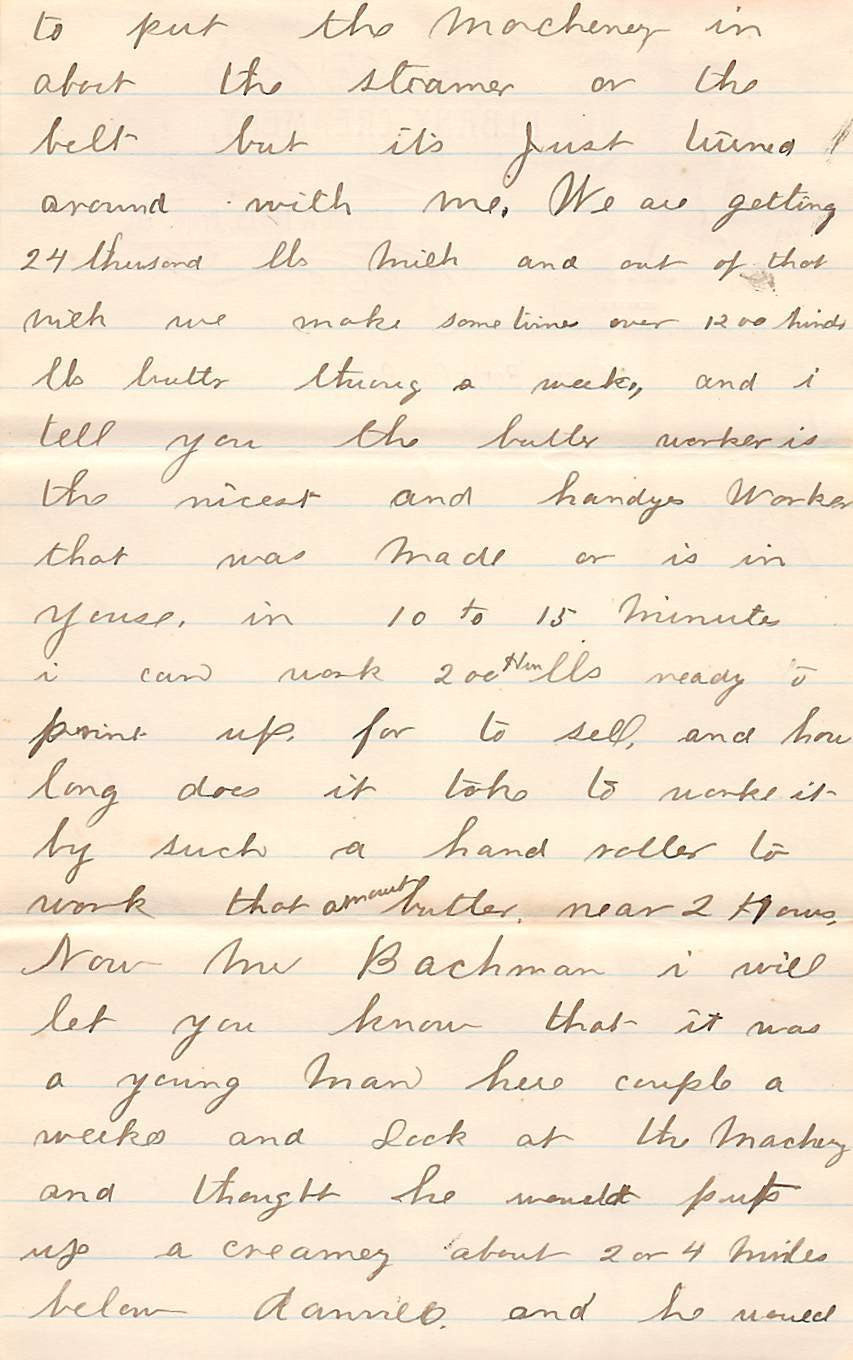 to put the Macheney in
about the steamer or the
belt but its Just turned
around with me. We are getting
24 thousand lbs Milk and out of that
Milk we make sometimes over 1200 hund
lbs buttr throug a week, and i
tell you the butter worker is
the nicest and handyes Worker
that was Made or is in
youse. in 10 to 15 Minutes
i can work 200 Hun lbs ready to
print up. for to sell. and how
long does it take to worke it
by such a hand roller to
work that amount butter. near 2 Hours.
Now Mr Bachman i will
let you know that it was
a young Man here couple a
weeks and Lock at the Machery
and thought he would put
up a creamey about 2 or 4 Miles
below and he woued